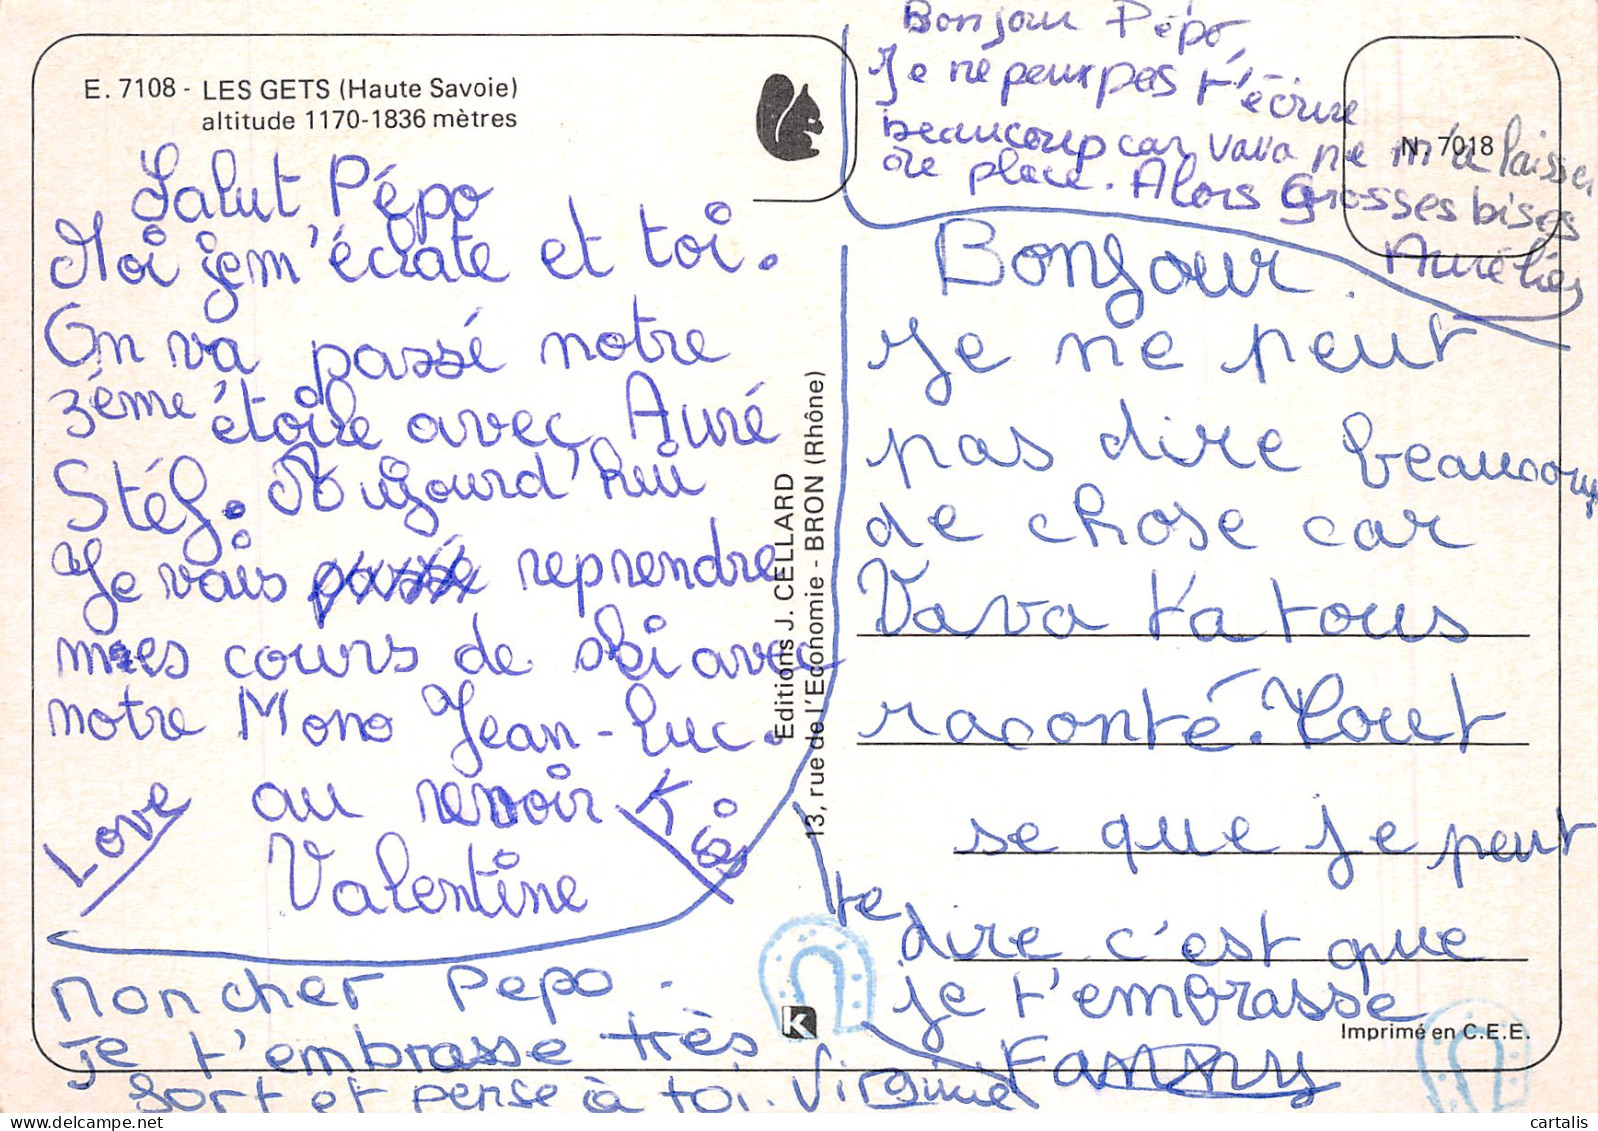 E. 7108 - LES GETS (Haute Savoie)
altitude 1170-1836 mètres
Salut Pépo
Moi je m'éclate et toi.
On va passé notre
3ème étoile avec Auré
Stéf. Aujourd'hui
Je vais passé reprendre
mes cours de ski avec
notre Mono Jean-Luc.
au revoir
Love
Valentine
Mon cher Pepo.
Je t'embrasse très
fort et pense à toi. Virginie
Editions J. CELLARD
13, rue de l'Economie - BRON (Rhône)
Bonjour Pépo,
Je ne peux pas t'écrire
beaucoup car Vava ne m'a laisser
de place. Alors Grosses bises
Aurélies
N. 7018
Bonjour.
Je ne peut
pas dire beaucoup
de chose car
Vava t'a tous
raconté. Tout
se que je peut
te dire c'est que
je t'embrasse
Fanny
K
Imprimé en C.E.E.
cartalis